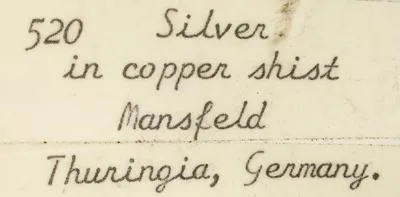 520 Silver.
in copper shist
Mansfeld
Thuringia, Germany.